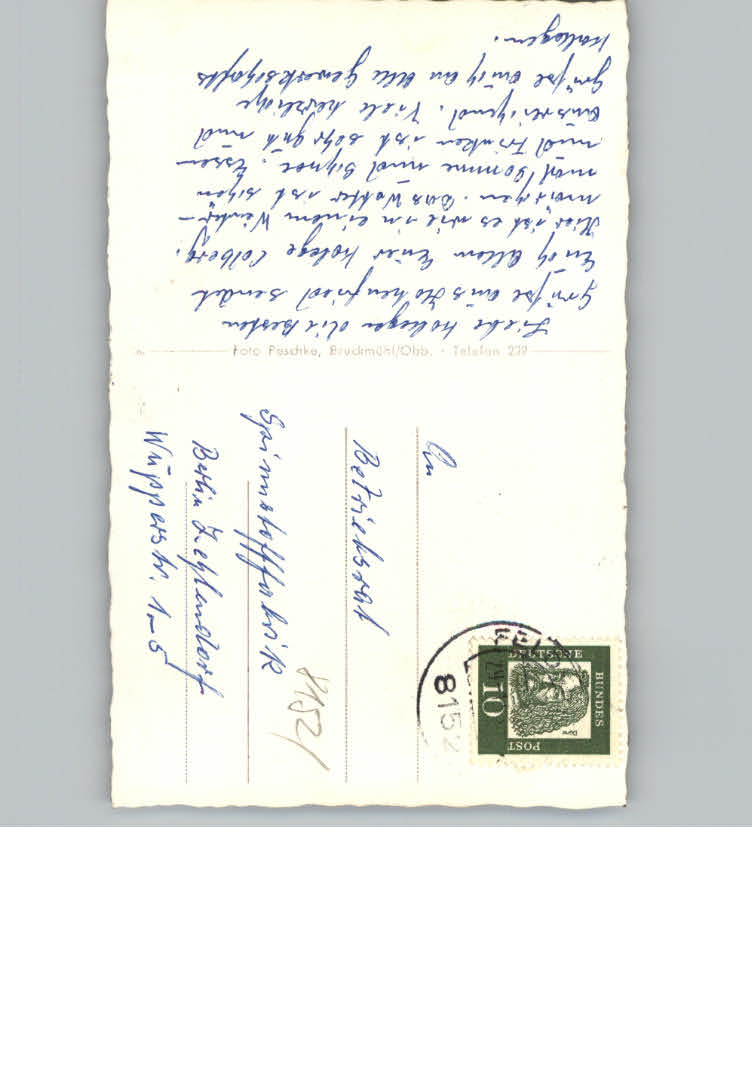 Liebe Kollegen die Besten
Grüße aus Hohenfried sendet
Euch Allen Euer Kollege Colberg.
Hier ist es wie in einem Winter-
märchen. Das Wetter ist schön
mäl Sonne mäl Schnee. Essen
und Trinken ist sehr gut und
ausreichend. Viele herzliche
Grüße auch an Alle Gewerkschafts
Kollegen.
Foto Peschke, Bruckmühl/Obb. · Telefon 239
An
Betriebsrat
Spinnstofffabrik
Berlin Zehlendorf
Wupperstr. 1-5
81521
DEUTSCHE
BUNDES
POST
10
Dürer
8152